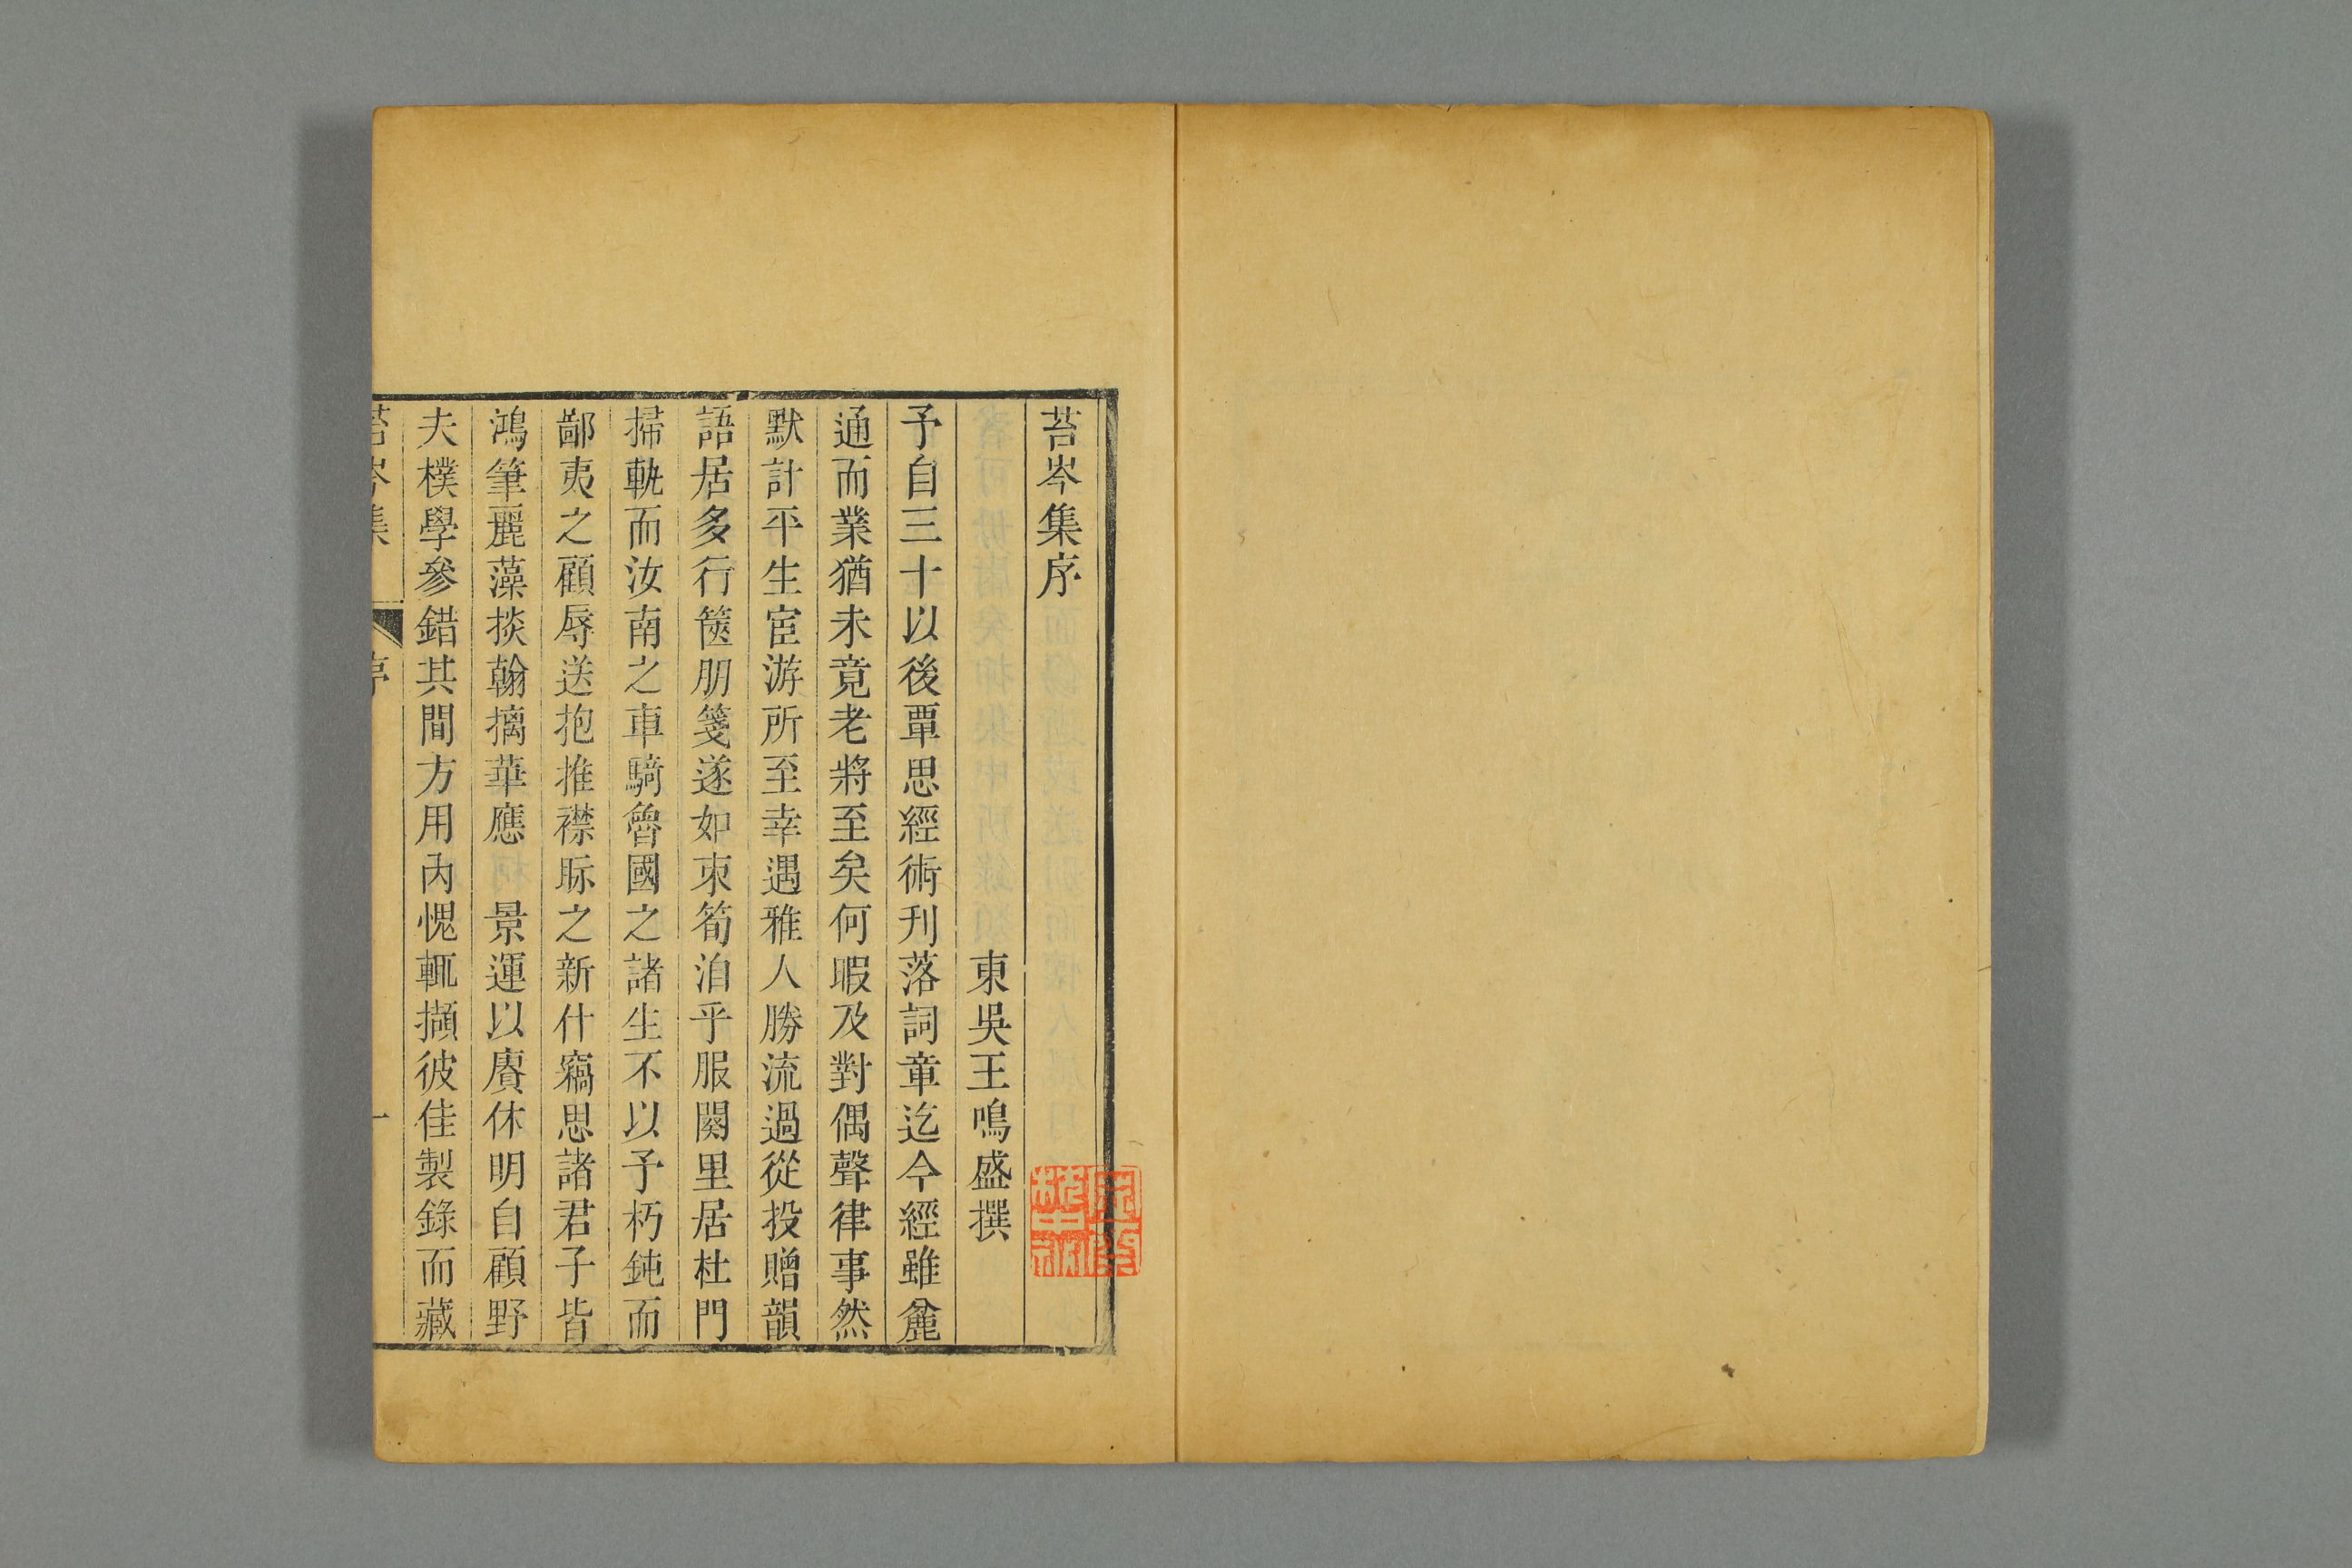 苔岑集序
東吳王鳴盛撰
予自三十以後覃思經術刋落詞章迄今經雖麄
通而業猶未竟老將至矣何暇及對偶聲律事然
默計平生宦游所至幸遇雅人勝流過從投贈韻
語居多行篋朋箋遂如束筍洎乎服闋里居杜門
掃軌而汝南之車騎魯國之諸生不以予朽鈍而
鄙夷之顧辱送抱推襟眎之新什竊思諸君子皆
鴻筆麗藻掞翰摛華應　景運以賡休明自顧野
夫樸學參錯其間方用內愧輒擷彼佳製錄而藏
苔岑集　序　一